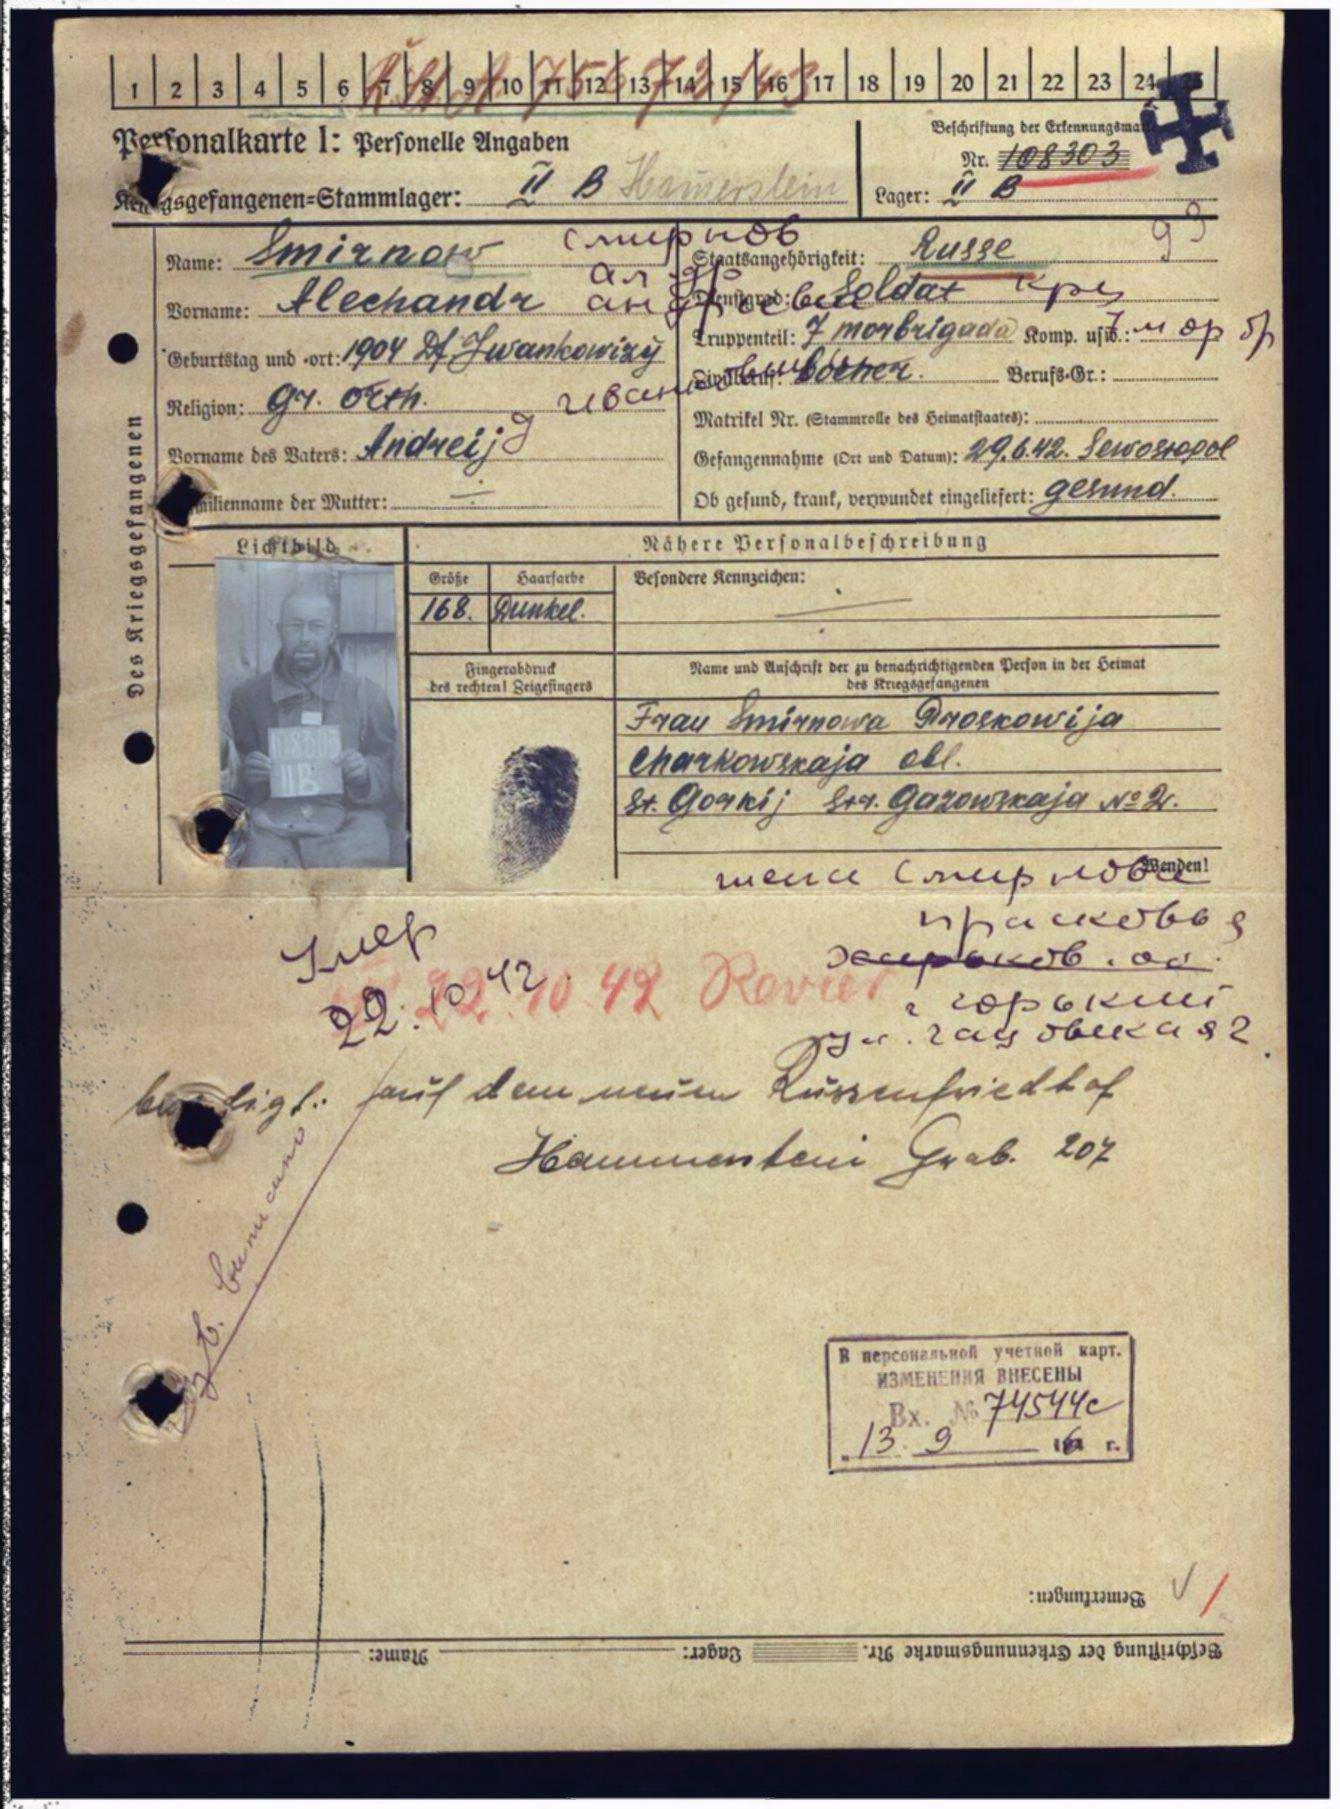 1 2 3 4 5 6 7 8 9 10 11 12 13 14 15 16 17 18 19 20 21 22 23 24 25
Personalkarte I: Personelle Angaben
Beschriftung der Erkennungsmarke
Nr. 108303
Kriegsgefangenen-Stammlager: II B Hamerstein
Lager: II B
Des Kriegsgefangenen
Name: Smirnow Смирнов
Vorname: Alechandr ал-др андреевич
Geburtstag und -ort: 1904 Df. Iwankowizy
Religion: Gr. Orth.
Vorname des Vaters: Andreij
Familienname der Mutter:
Staatsangehörigkeit: Russe
Dienstgrad: Soldat кр-ц
Truppenteil: 7 morbrigada Komp. usw.: 7 мор бр
Zivilberuf: Berufs-Gr.:
Matrikel Nr. (Stammrolle des Heimatstaates):
Gefangennahme (Ort und Datum): 29.6.42. Sewostopol
Ob gesund, krank, verwundet eingeliefert: gesund.
Lichtbild
Nähere Personalbeschreibung
Größe Haarfarbe Besondere Kennzeichen:
168. Dunkel.
Fingerabdruck
des rechten! Zeigefingers
Name und Anschrift der zu benachrichtigenden Person in der Heimat
des Kriegsgefangenen
Frau Smirnowa Proskowija
Charkowskaja obl.
St. Gorkij Str. Gazowskaja № 2.
Wenden!
108303
II B
жена Смирнова
прасковья
харьков. об.
г горький
ул. 2
Умер
22.10.42
22.10.42 Revier
beerdigt: auf dem neuen Russenfriedhof
Hammerstein Grab. 207
В персональной учетной карт.
ИЗМЕНЕНИЯ ВНЕСЕНЫ
Вх. № 74544с
13. 9 г.
Bemerkungen:
Beschriftung der Erkennungsmarke Nr. Lager: Name: